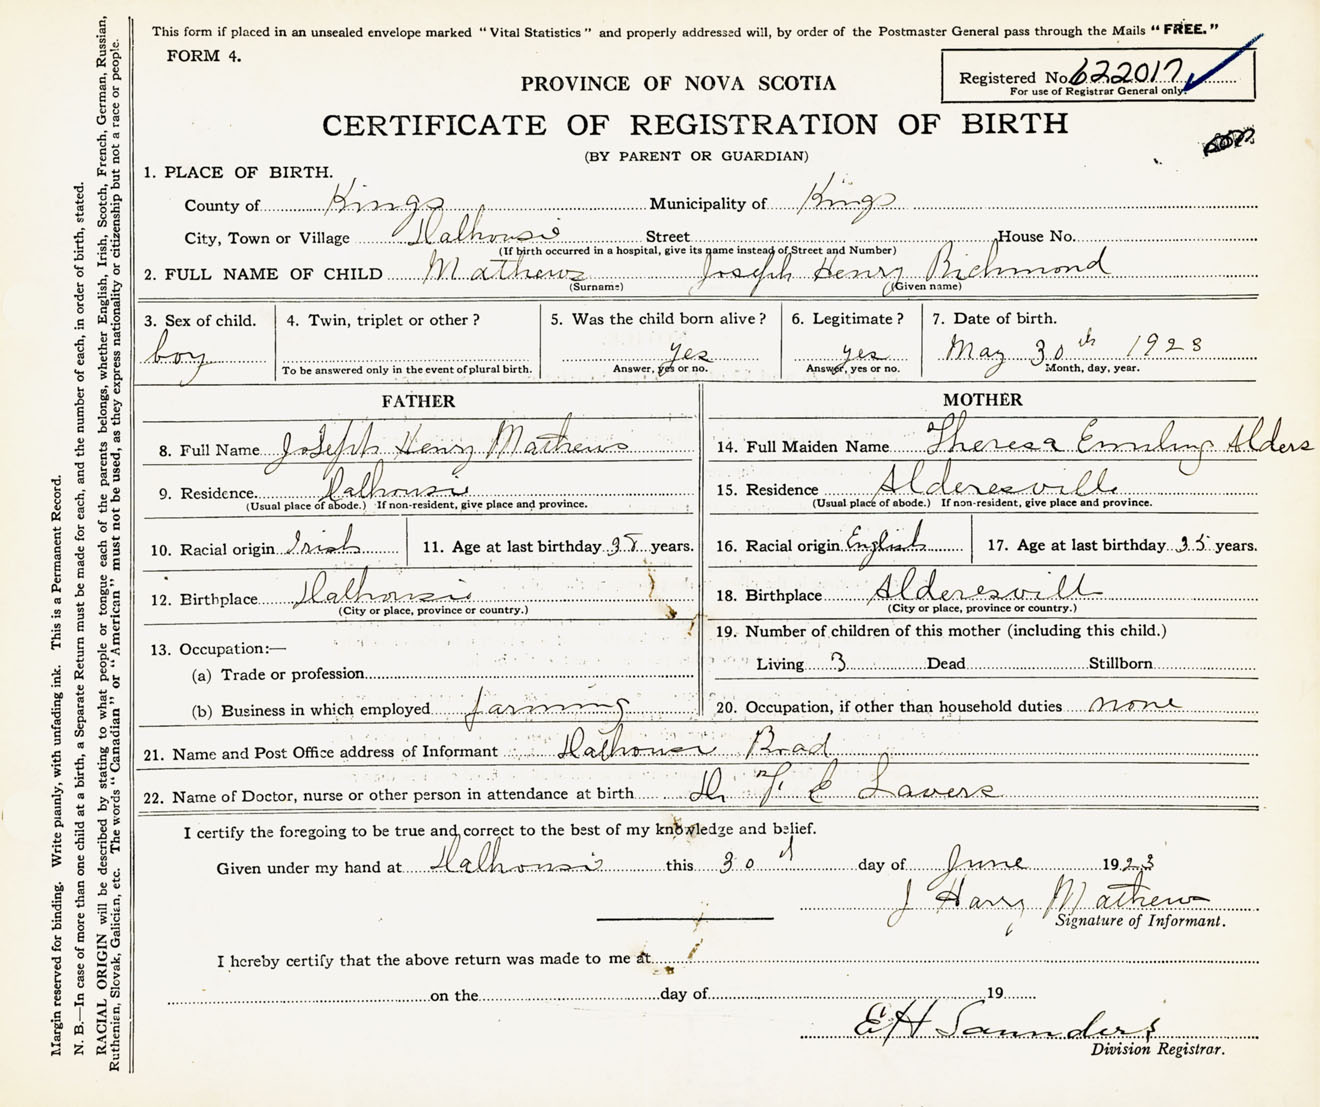 This form if placed in an unsealed envelope marked "Vital Statistics" and properly addressed will, by order of the Postmaster General pass through the Mails "FREE."
FORM 4.
Registered No. 622017
For use of Registrar General only.
PROVINCE OF NOVA SCOTIA
CERTIFICATE OF REGISTRATION OF BIRTH
(BY PARENT OR GUARDIAN)
1. PLACE OF BIRTH.
County of Kings Municipality of Kings
City, Town or Village Dalhousie Street House No.
(If birth occurred in a hospital, give its name instead of Street and Number)
2. FULL NAME OF CHILD Mathews Joseph Henry Richmond
(Surname) (Given name)
3. Sex of child. 4. Twin, triplet or other? 5. Was the child born alive? 6. Legitimate? 7. Date of birth.
boy yes yes May 30th 1923
To be answered only in the event of plural birth. Answer, yes or no. Answer, yes or no. Month, day, year.
FATHER MOTHER
8. Full Name Joseph Henry Mathews 14. Full Maiden Name Theresa Alders
9. Residence. Dalhousie 15. Residence Alderesville
(Usual place of abode.) If non-resident, give place and province. (Usual place of abode.) If non-resident, give place and province.
10. Racial origin Irish 11. Age at last birthday years. 16. Racial origin English 17. Age at last birthday 35 years.
12. Birthplace Dalhousie 18. Birthplace Alderesvill
(City or place, province or country.) (City or place, province or country.)
13. Occupation:— 19. Number of children of this mother (including this child.)
(a) Trade or profession Living 3 Dead Stillborn
(b) Business in which employed farming 20. Occupation, if other than household duties none
21. Name and Post Office address of Informant Dalhousie Road
22. Name of Doctor, nurse or other person in attendance at birth Dr Lavers
I certify the foregoing to be true and correct to the best of my knowledge and belief.
Given under my hand at Dalhousie this 30 day of June 1923
J Harry Mathews
Signature of Informant.
I hereby certify that the above return was made to me at
on the day of 19
E H Saunders
Division Registrar.
Margin reserved for binding. Write plainly, with unfading ink. This is a Permanent Record.
N. B.—In case of more than one child at a birth, a Separate Return must be made for each, and the number of each, in order of birth, stated.
RACIAL ORIGIN will be described by stating to what people or tongue each of the parents belongs, whether English, Irish, Scotch, French, German, Russian,
Ruthenian, Slovak, Galician, etc. The words "Canadian" or "American" must not be used, as they express nationality or citizenship but not a race or people.